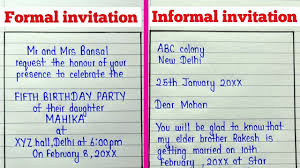 Formal invitation
Mr and Mrs Bansal
request the honour of your
presence to celebrate the
FIFTH BIRTHDAY PARTY
of their daughter
MAHIKA
at
XYZ hall, Delhi at 6:00pm
On February 8, 20XX
Informal invitation
ABC colony
New Delhi
25th January 20XX
Dear Mohan
You will be glad to know that
my elder brother Rakesh is
getting married on 10th
February, 20XX at Star